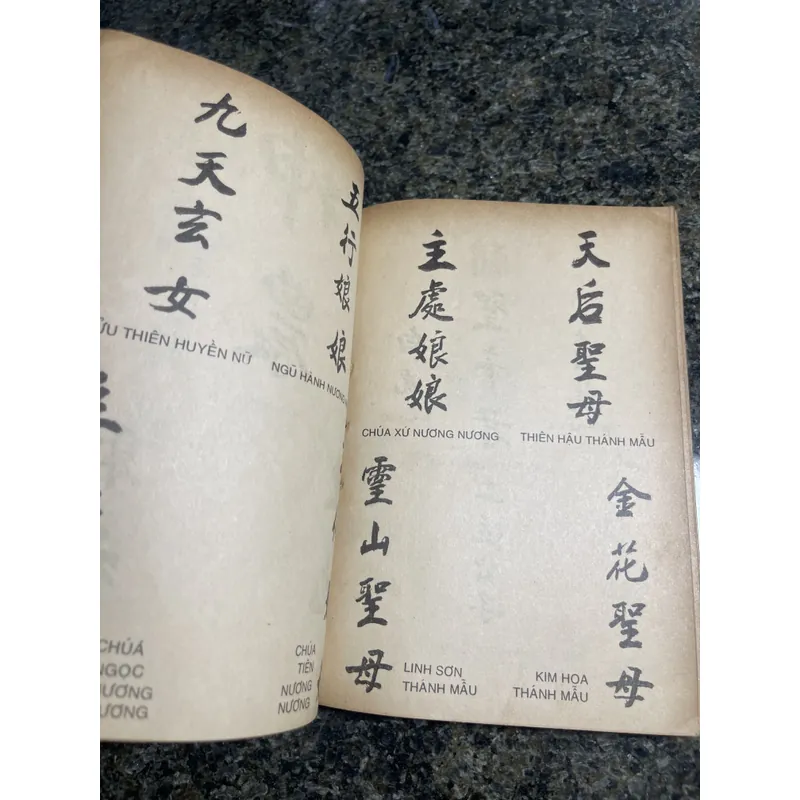 九天玄女
ỬU THIÊN HUYỀN NỮ
五行娘娘
NGŨ HÀNH NƯƠNG
CHÚA
NGỌC
NƯƠNG
ƯƠNG
CHÚA
TIÊN
NƯƠNG
NƯƠNG
主處娘娘
CHÚA XỨ NƯƠNG NƯƠNG
天后聖母
THIÊN HẬU THÁNH MẪU
靈山聖母
LINH SƠN
THÁNH MẪU
金花聖母
KIM HOA
THÁNH MẪU